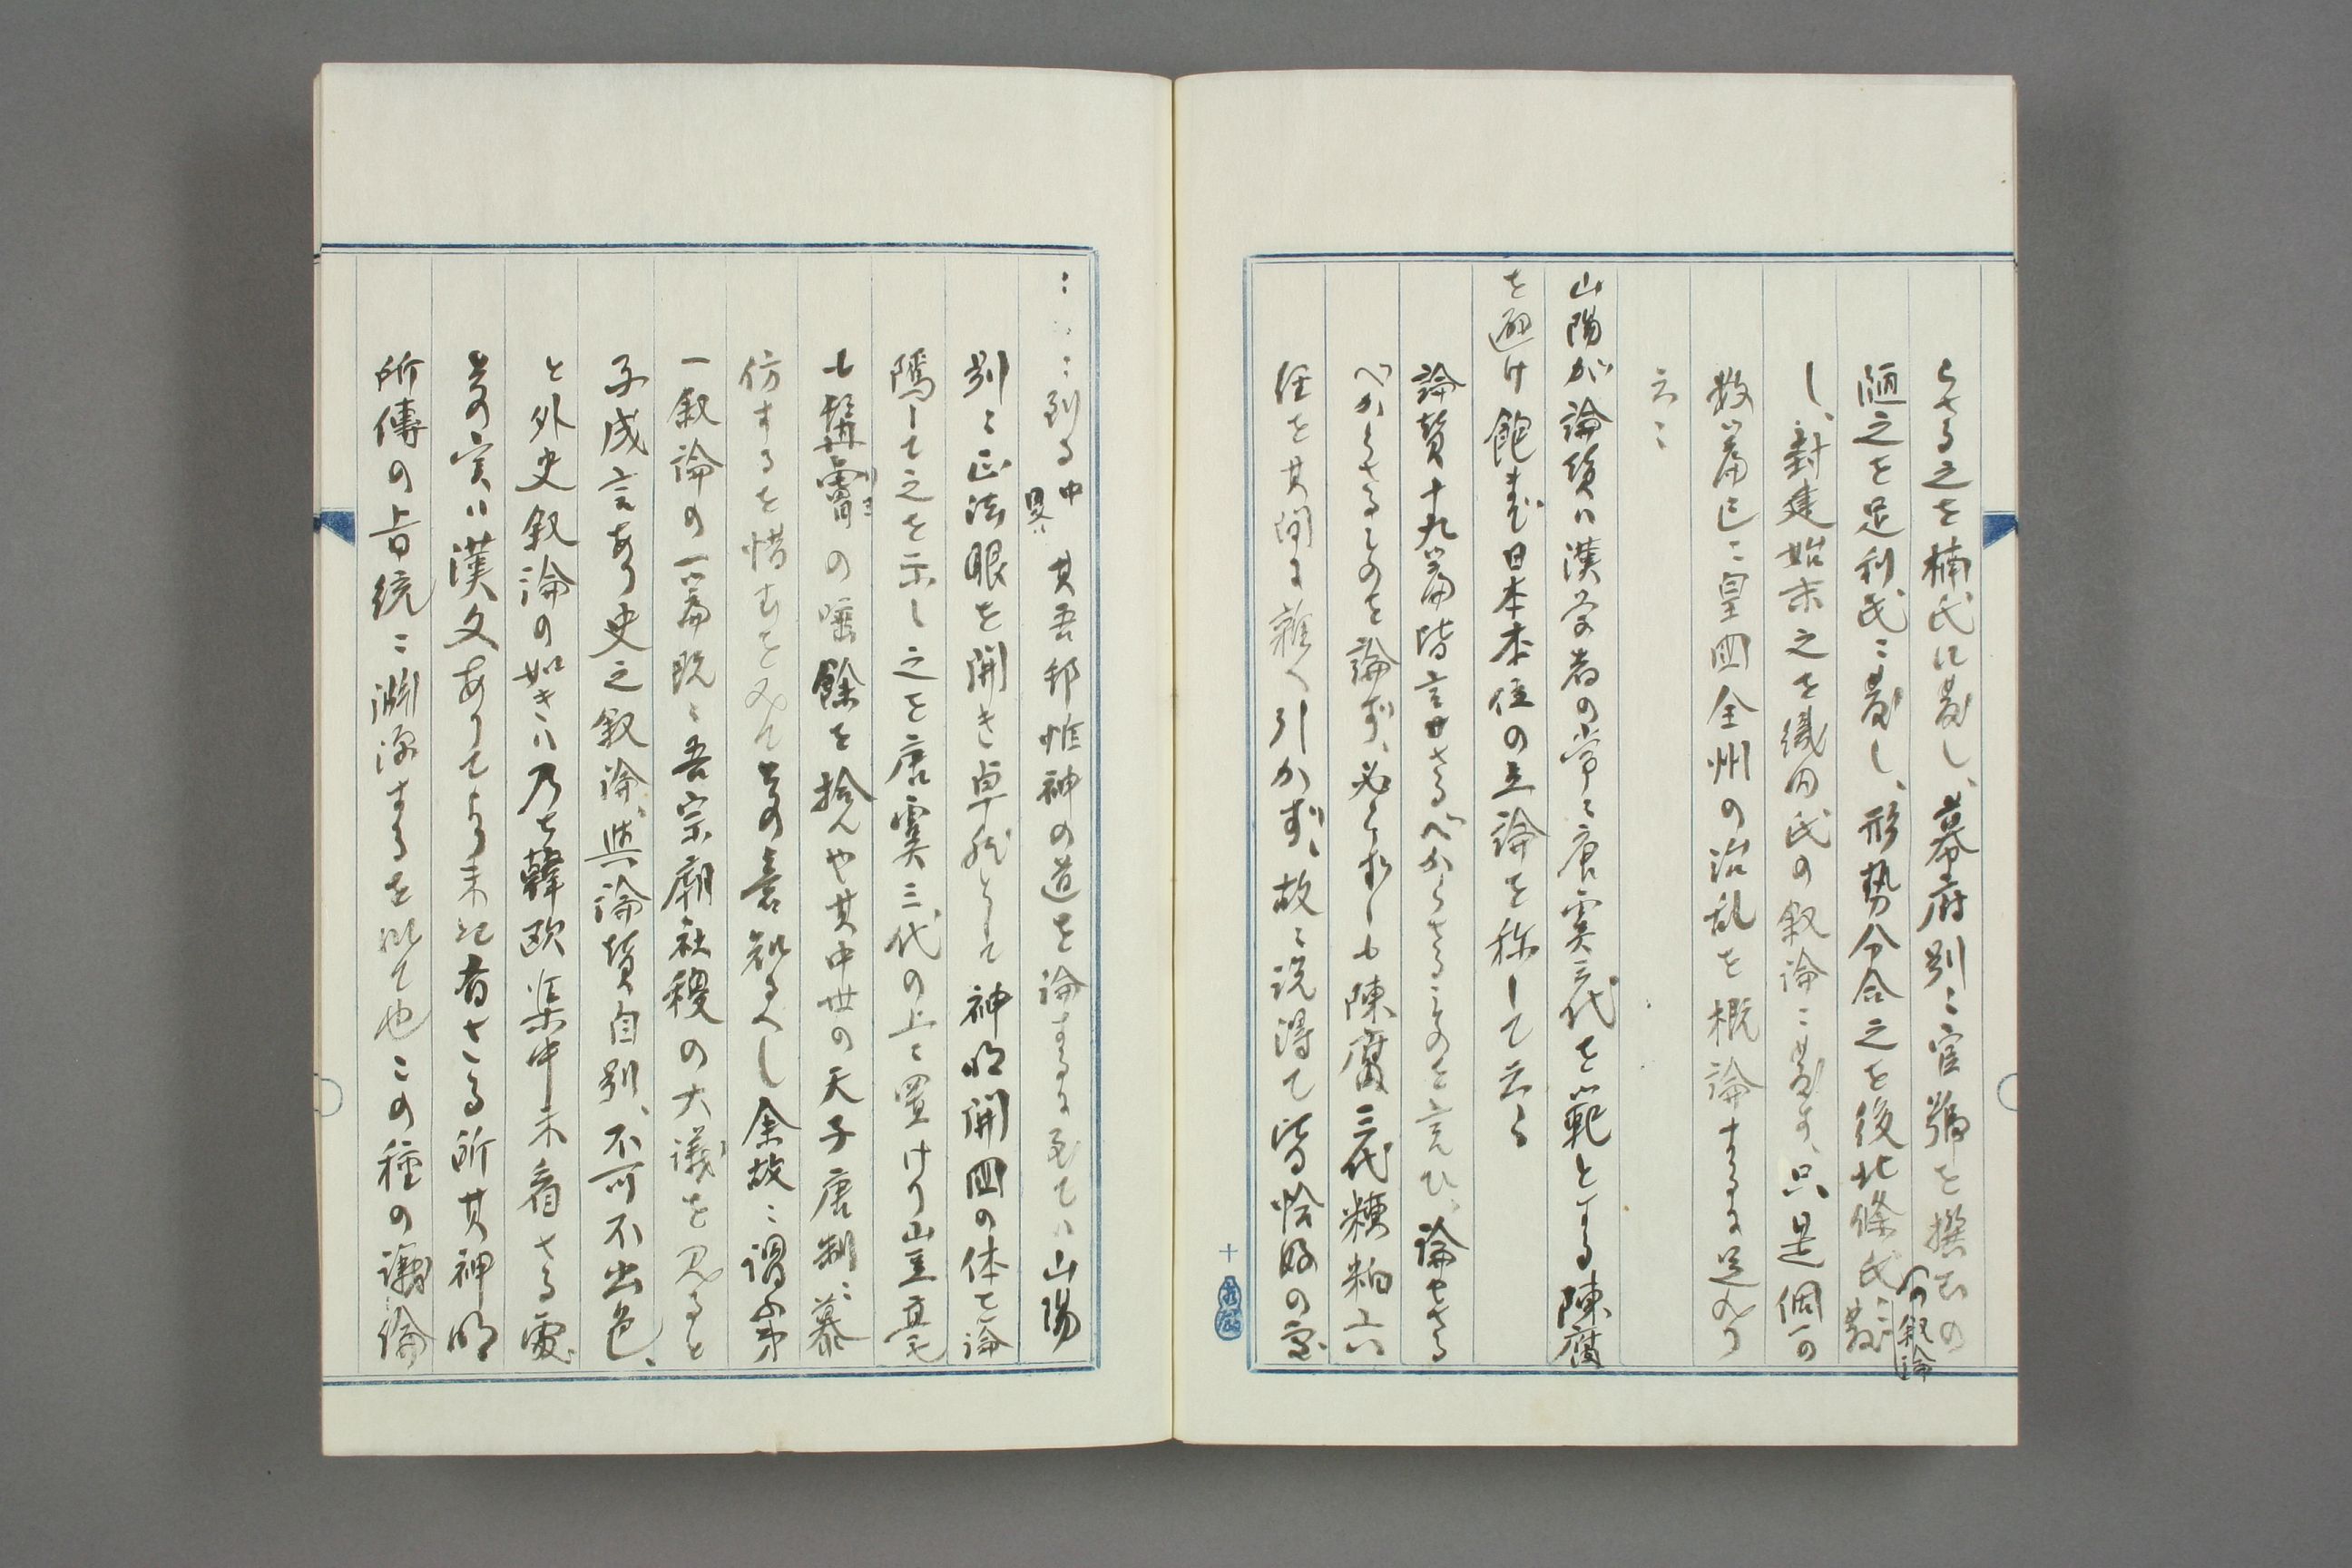 らさる之を楠氏に発し、幕府別ニ官号を撰むの
の叙論
陋之を足利氏ニ発し、形勢分合之を後北條氏ニ発
し、封建始末之を織田氏の叙論ニ発す、只是個の
数篇已ニ皇国全州の治乱を概論するに足れり
云々
山陽が論賛ハ漢学者の常ニ唐虞三代を範とする陳腐
を避け飽まで日本本位の立論を称して云る
論賛十九篇皆言ざるべからざることのを言ひ、論ぜざる
べからざることのを論ず、必らずしも陳腐三代糟粕六
経を其間に雑へ引かず、故ニ説得て皆恰好の
……到る中 其吾邦惟神の道を論するに至てハ山陽
畧
別ニ正法眼を開き卓然として神明開国の体を論
隲して之を示し之を唐虞三代の上ニ置けり山豈毫
も の唾餘を拾んや其中世の天子唐制ニ慕
仿するを惜むを見て其の意知るべし余故ニ謂ふ第
一叙論の一篇既ニ吾宗廟社稷の大議を見ると
子成言あり史之叙論與論賛自別、不可不出色、
と外史叙論の如きハ乃ち韓欧集中未看さる処
其の実ハ漢文ありてより未だ看さる所其神明
所傳の旨統ニ淵源するを以て也この種の議論
十